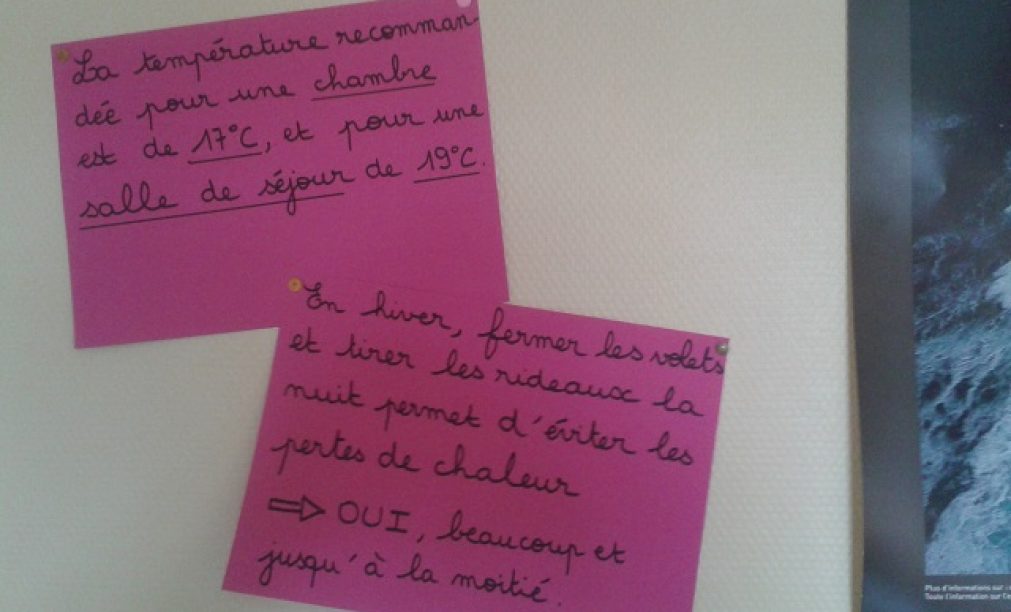 La température recomman-
déé pour une chambre
est de 17°C, et pour une
salle de séjour de 19°C.
En hiver, fermer les volets
et tirer les rideaux la
nuit permet d'éviter les
pertes de chaleur
⇒ OUI, beaucoup et
jusqu'à la moitié.
Plus d'informations sur
Toute l'information sur l'e